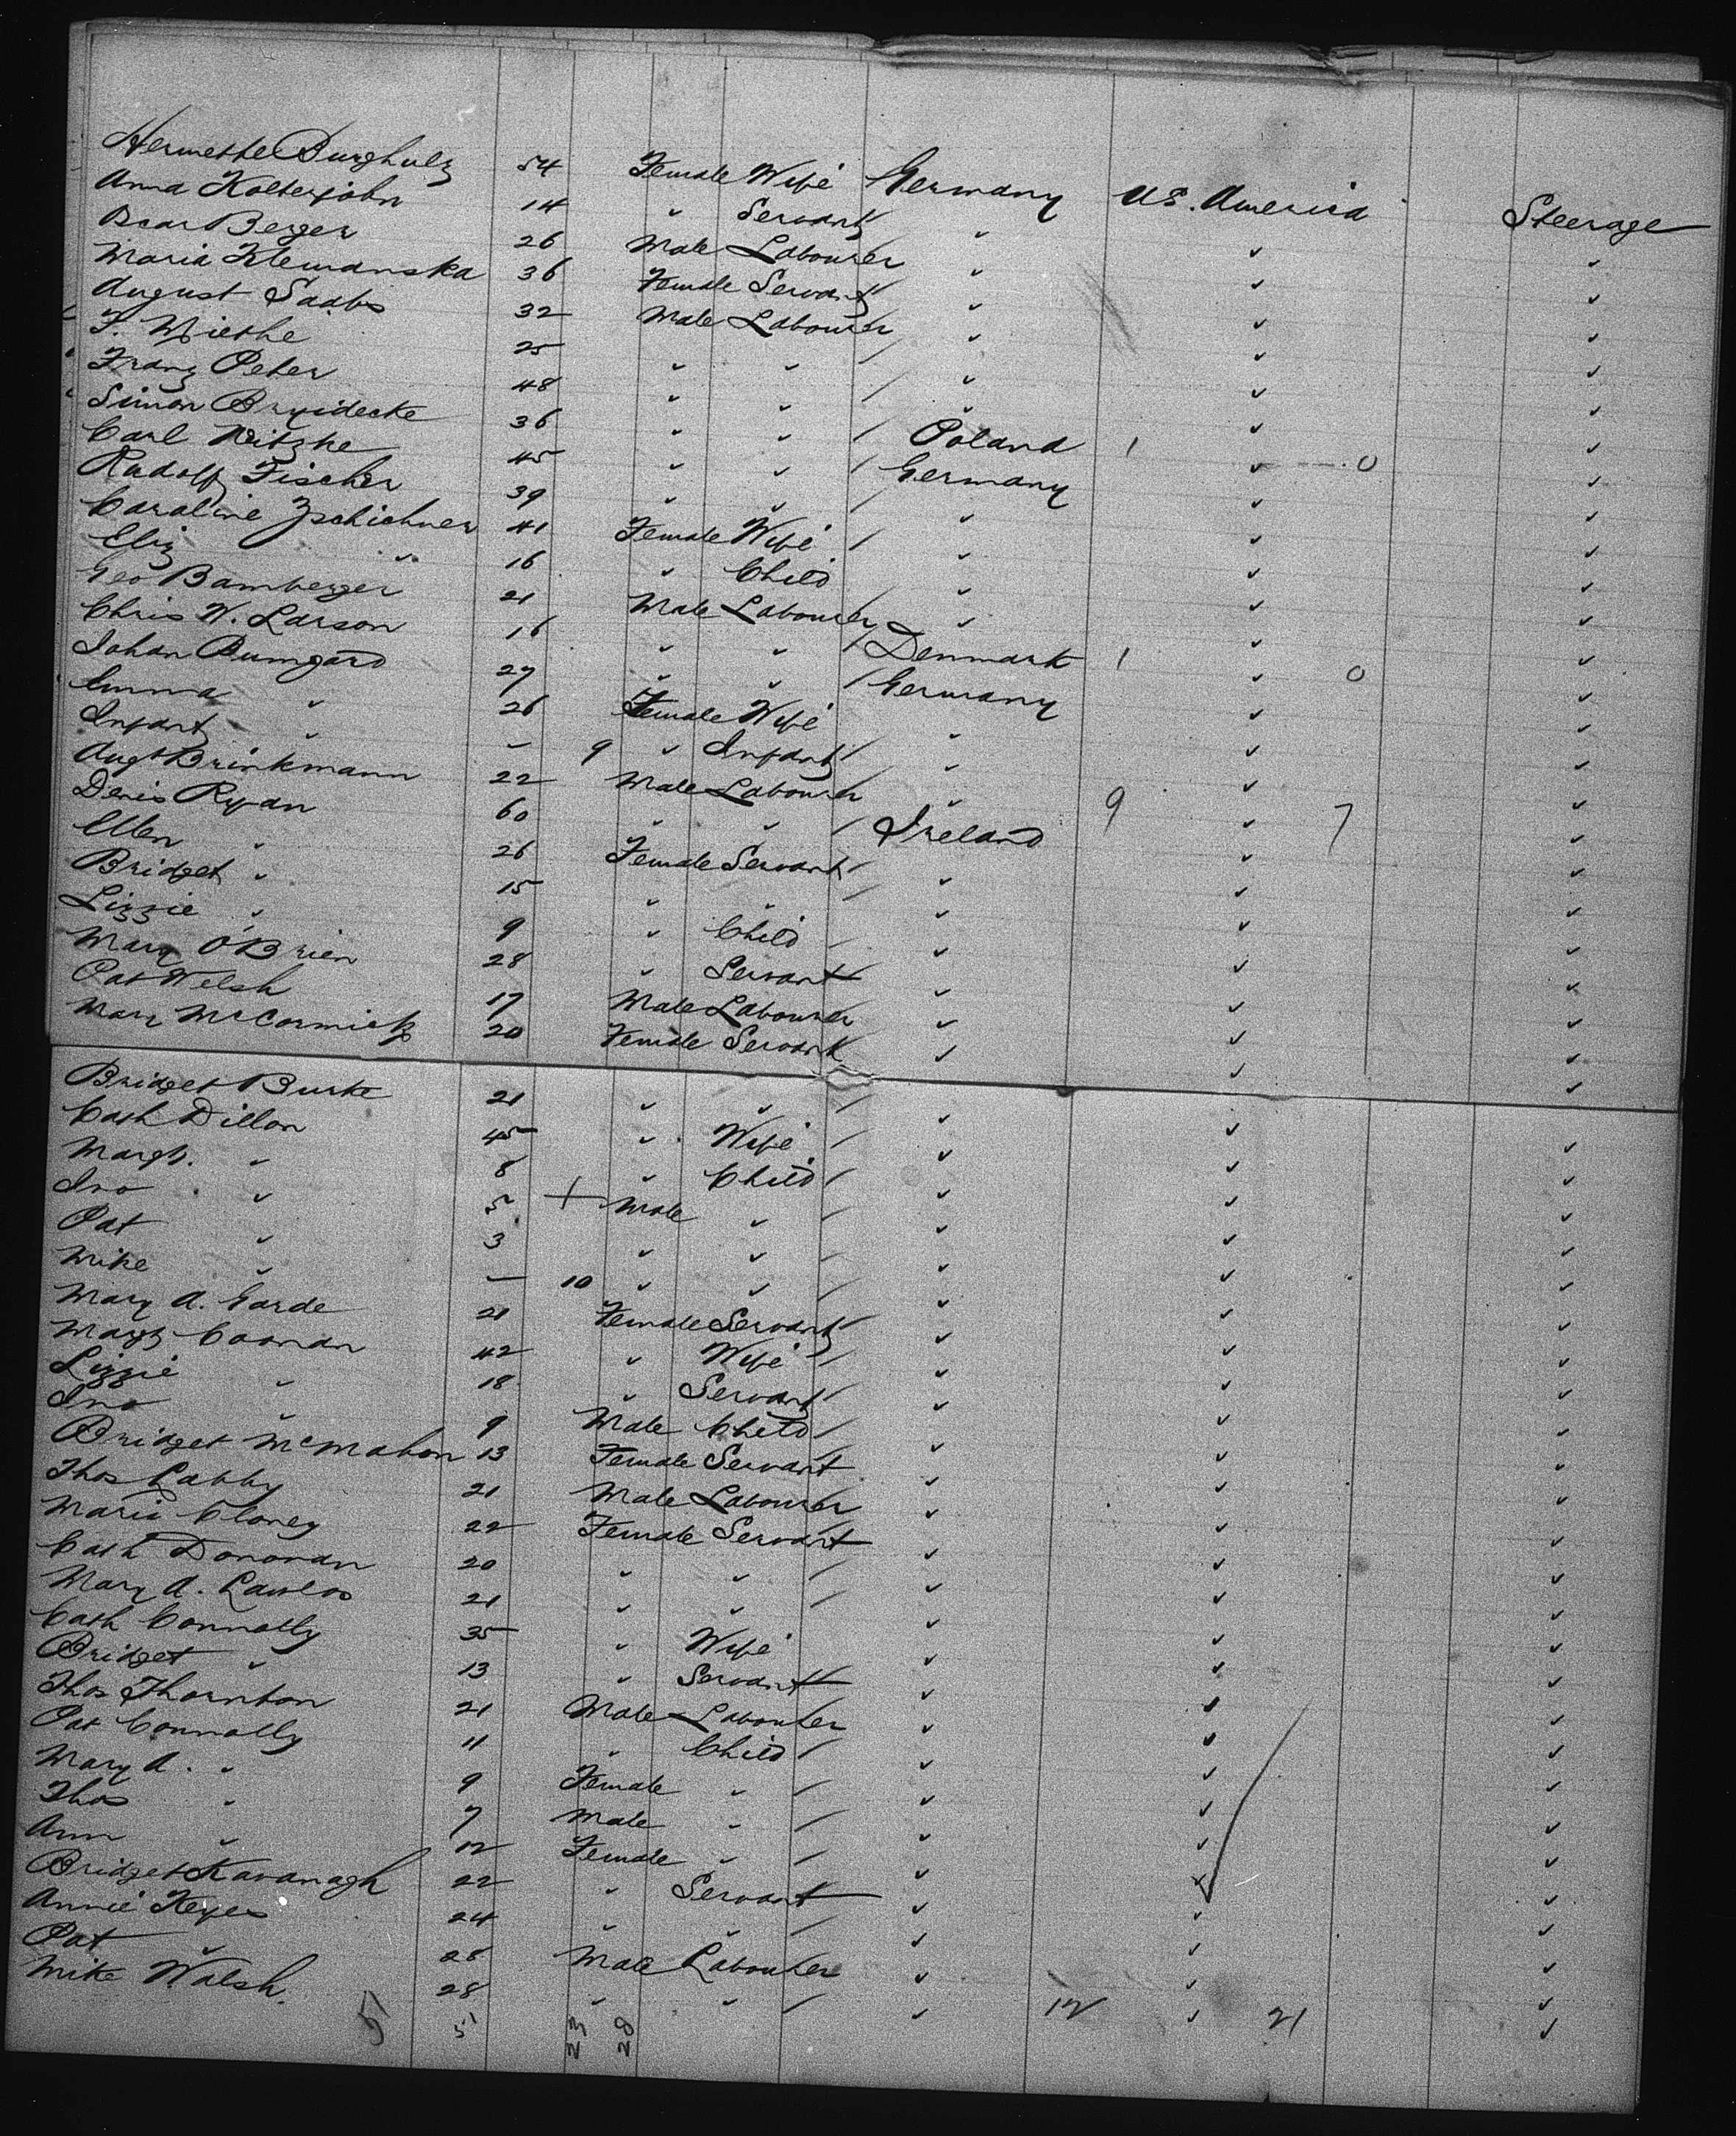 Hermethe Burgholz 54 Female Wife Germany U.S. America Steerage
Anna Kolterjohn 14 " Servant " " "
Oscar Berger 26 Male Labourer " " "
Maria Klemanska 36 Female Servant " " "
August Saabs 32 Male Labourer " " "
F. Wiethe 25 " " " " "
Franz Peter 48 " " " " "
Simon 36 " " Poland 1 " 0 "
Carl Nitzke 45 " " Germany " "
Rudolf Fischer 39 " " " " "
Caroline Zschichner 41 Female Wife " " "
Eliz " 16 " Child " " "
Geo Bamberger 21 Male Labourer " " "
Chris W. Larson 16 " " Denmark 1 " 0 "
Johan Bumgard 27 " " Germany " "
Emma " 26 Female Wife " " "
Infant " — 9 " Infant " " "
Augt Brinkmann 22 Male Labourer " " "
Denis Ryan 60 " " Ireland 9 " 7 "
Ellen " 26 Female Servant " " "
Bridget " 15 " " " " "
Lizzie " 9 " Child " " "
Mary O'Brien 28 " Servant " " "
Pat Welsh 17 Male Labourer " " "
Mary McCormick 20 Female Servant " " "
Bridget Burke 21 " " " " "
Cath Dillon 45 " Wife " " "
Margt. " 8 " Child " " "
Jno " 5 + Male " " " "
Pat " 3 " " " " "
Mike " — 10 " " " " "
Mary A. Garde 21 Female Servant " " "
Margt Coonan 42 " Wife " " "
Lizzie " 18 " Servant " " "
Jno " 9 Male Child " " "
Bridget McMahon 13 Female Servant " " "
Thos Labby 21 Male Labourer " " "
Maria Cloney 22 Female Servant " " "
Cath Donovan 20 " " " " "
Mary A. Lawlos 21 " " " " "
Cath Connolly 35 " Wife " " "
Bridget " 13 " Servant " " "
Thos Thornton 21 Male Labourer " " "
Pat Connolly 11 " Child " " "
Mary A. " 9 Female " " " "
Thos " 7 Male " " " "
Ann " 12 Female " " " "
Bridget Kavanagh 22 " Servant " " "
Annie Keyes 24 " " " " "
Pat " 28 Male Labourer " " "
Mike Walsh. 28 " " " 12 " 21 "
51 51 23 28